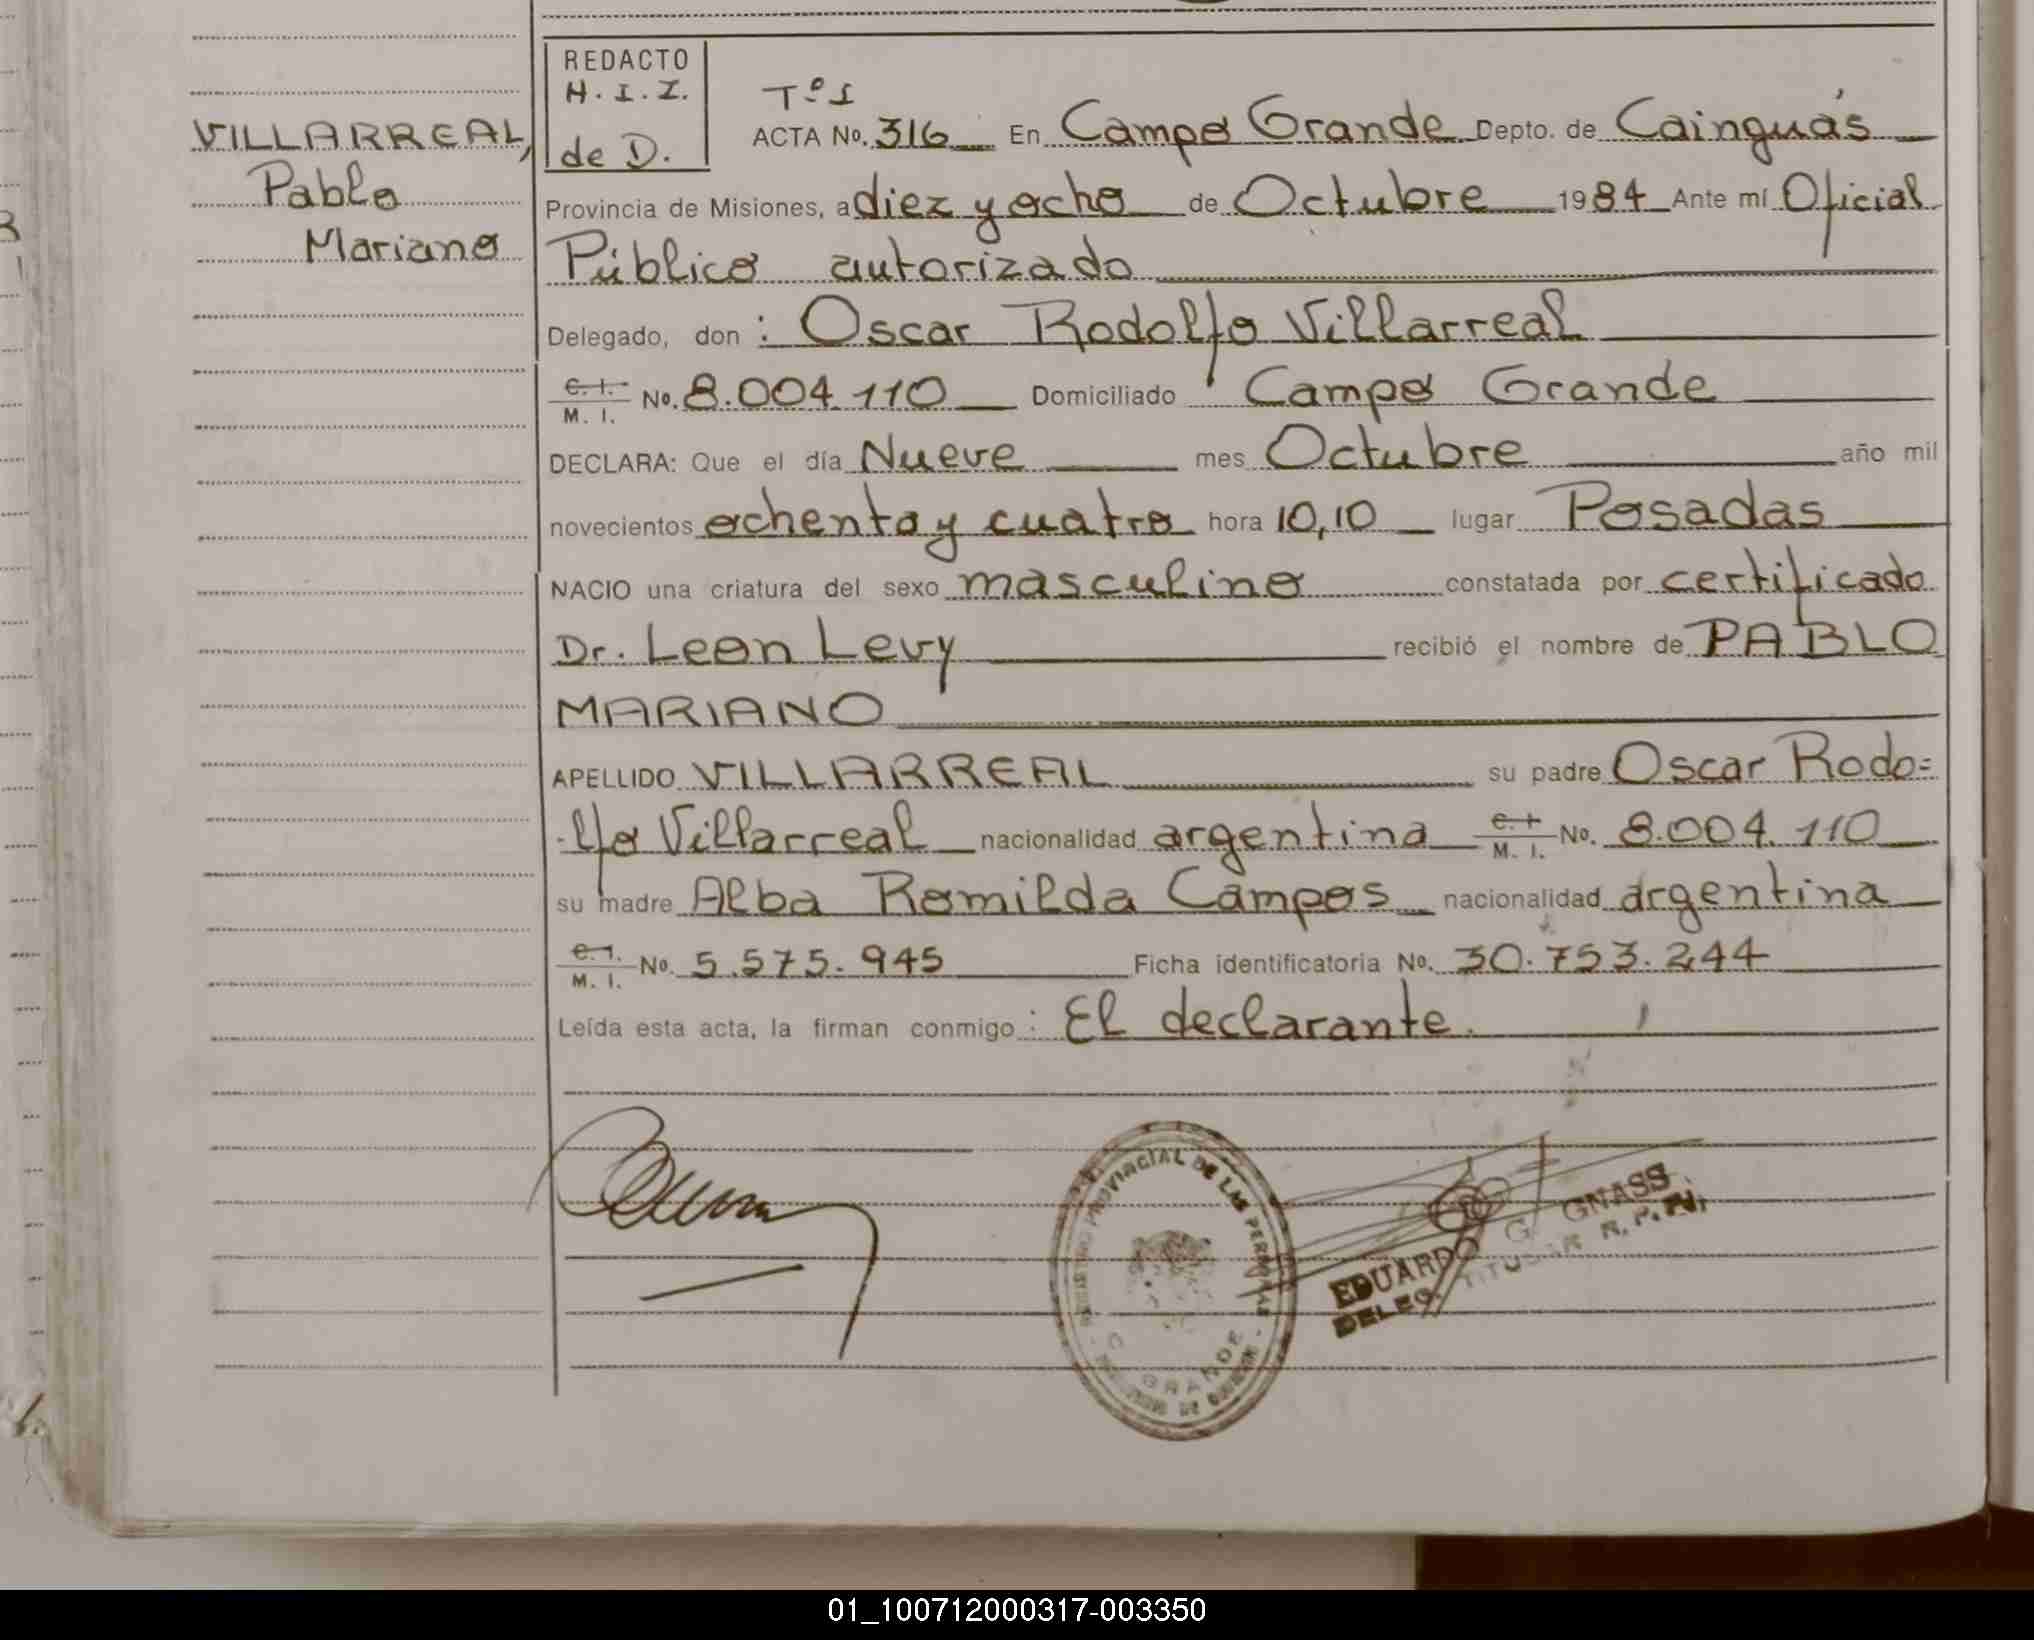 VILLARREAL,
Pablo
Mariano
REDACTO
H.I.Z.
de D.
Tº I
ACTA No. 316 En Campo Grande Depto. de Cainguás
Provincia de Misiones, a diez y ocho de Octubre 1984 Ante mí Oficial
Público autorizado
Delegado, don: Oscar Rodolfo Villarreal
C. I. M. I. No. 8.004.110 Domiciliado Campo Grande
DECLARA: Que el día Nueve mes Octubre año mil
novecientos ochenta y cuatro hora 10,10 lugar Posadas
NACIO una criatura del sexo masculino constatada por certificado
Dr. Leon Levy recibió el nombre de PABLO
MARIANO
APELLIDO VILLARREAL su padre Oscar Rodo=
lfo Villarreal nacionalidad argentina C. I. M. I. No. 8.004.110
su madre Alba Romilda Campos nacionalidad argentina
C. I. M. I. No. 5.575.945 Ficha identificatoria No. 30.753.244
Leída esta acta, la firman conmigo: El declarante.
PROVINCIAL DE LAS PERSONAS
C. GRANDE
EDUARDO G. GNASS
DELEG. TITULAR R.P.P.
01_100712000317-003350